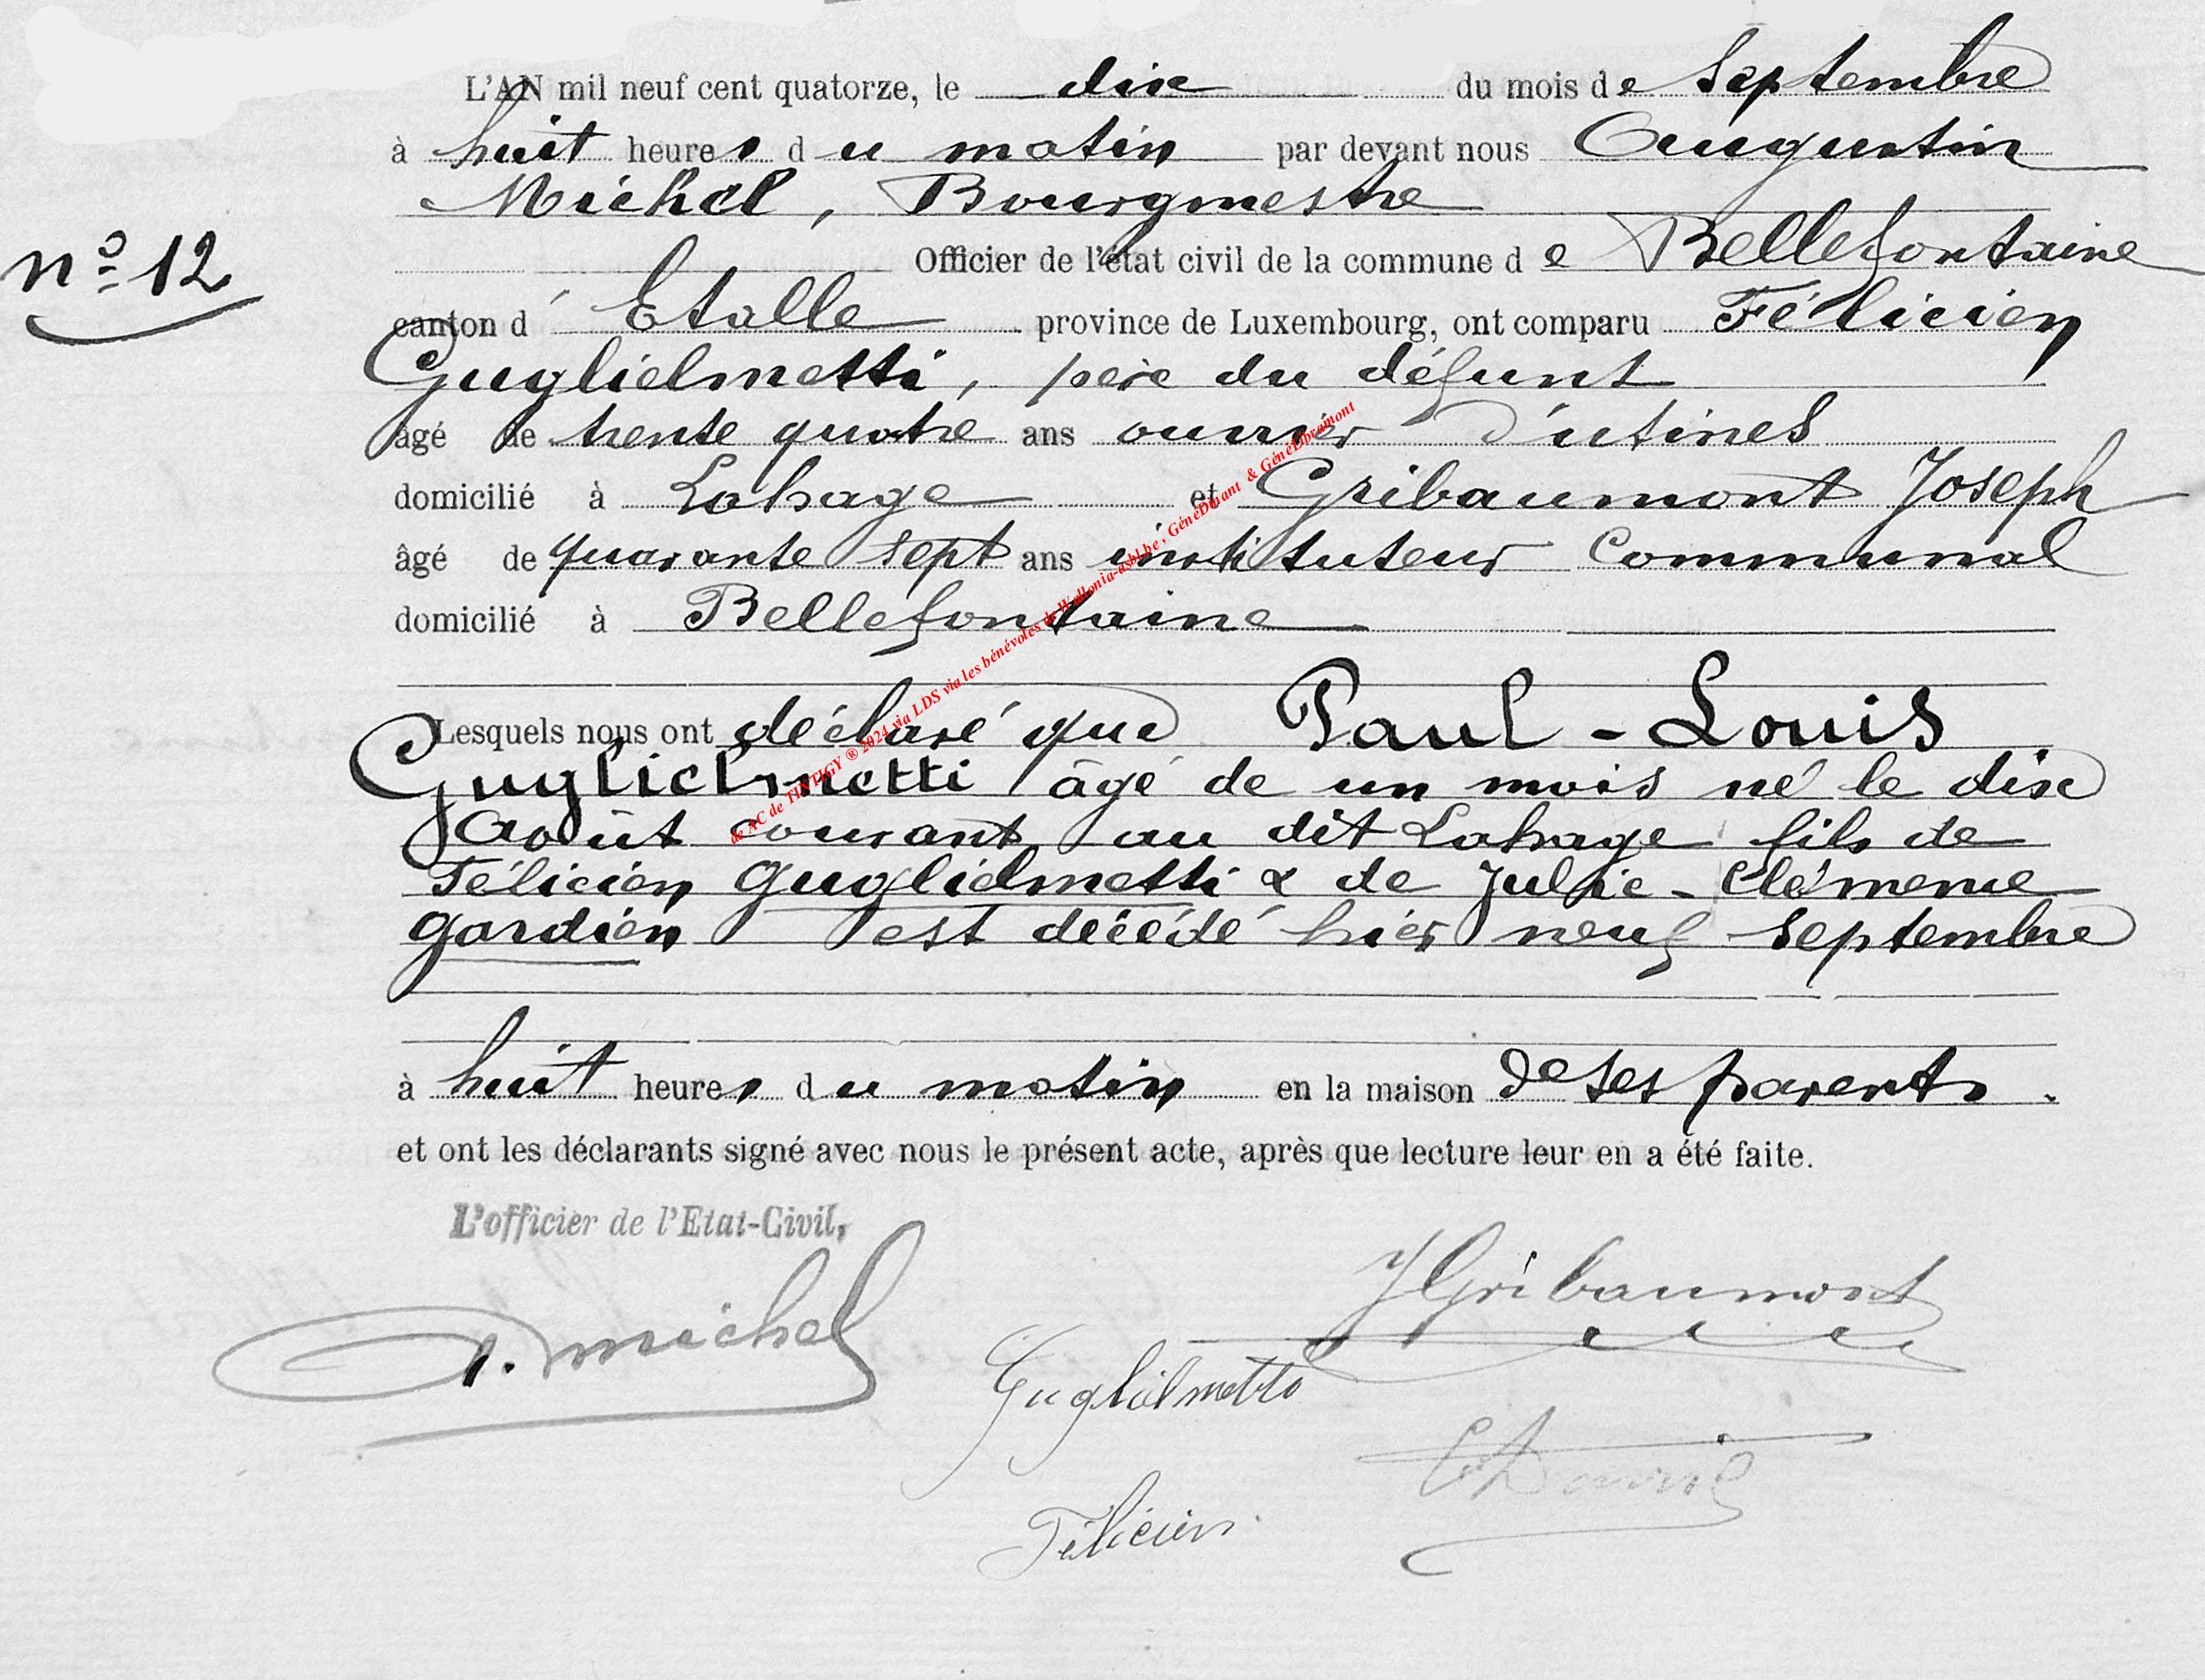 L'AN mil neuf cent quatorze, le dix du mois de Septembre
à huit heures du matin par devant nous Augustin
Michel, Bourgmestre
Officier de l'état civil de la commune de Bellefontaine
n° 12
canton d'Etalle province de Luxembourg, ont comparu Félicien
Guglielmetti, père du défunt
âgé de trente quatre ans ouvrier d'usines
domicilié à Lahage et Gribaumont Joseph
âgé de quarante sept ans instituteur communal
domicilié à Bellefontaine
Lesquels nous ont déclaré que Paul-Louis
Guglielmetti âgé de un mois né le dix
Août courant au dit Lahage fils de
Félicien Guglielmetti & de Julie-Clémence
Gardien est décédé hier neuf septembre
à huit heures du matin en la maison de ses parents.
et ont les déclarants signé avec nous le présent acte, après que lecture leur en a été faite.
L'officier de l'Etat-Civil,
A. Michel
JGribaumont
Guglielmetti
Félicien
de AC de TINTIGY ® 2024 via LDS via les bénévoles de Wallonia-asbl.be, GénéDinant & GénéLibramont